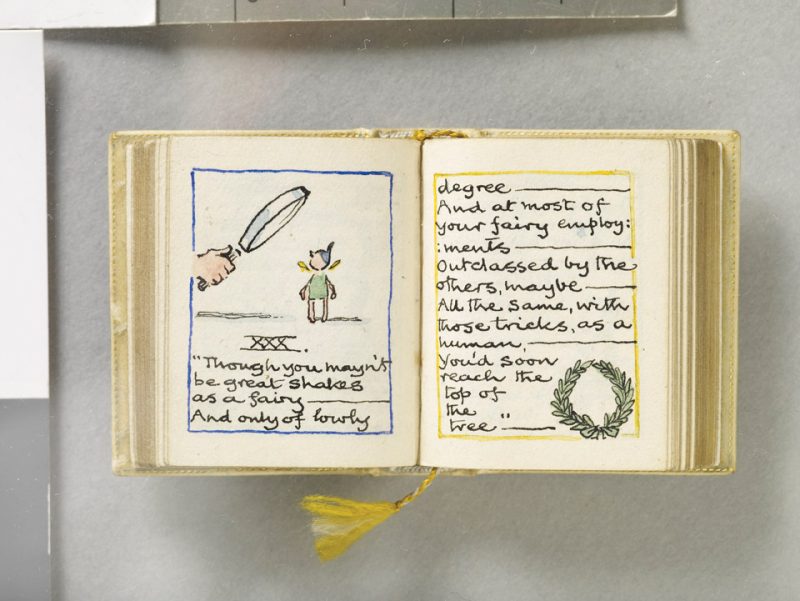 XXX.
"Though you mayn't
be great shakes
as a fairy
And only of lowly
degree
And at most of
your fairy employ:
:ments
Outclassed by the
others, maybe
All the same, with
those tricks, as a
human,
You'd soon
reach the
top of
the
tree"